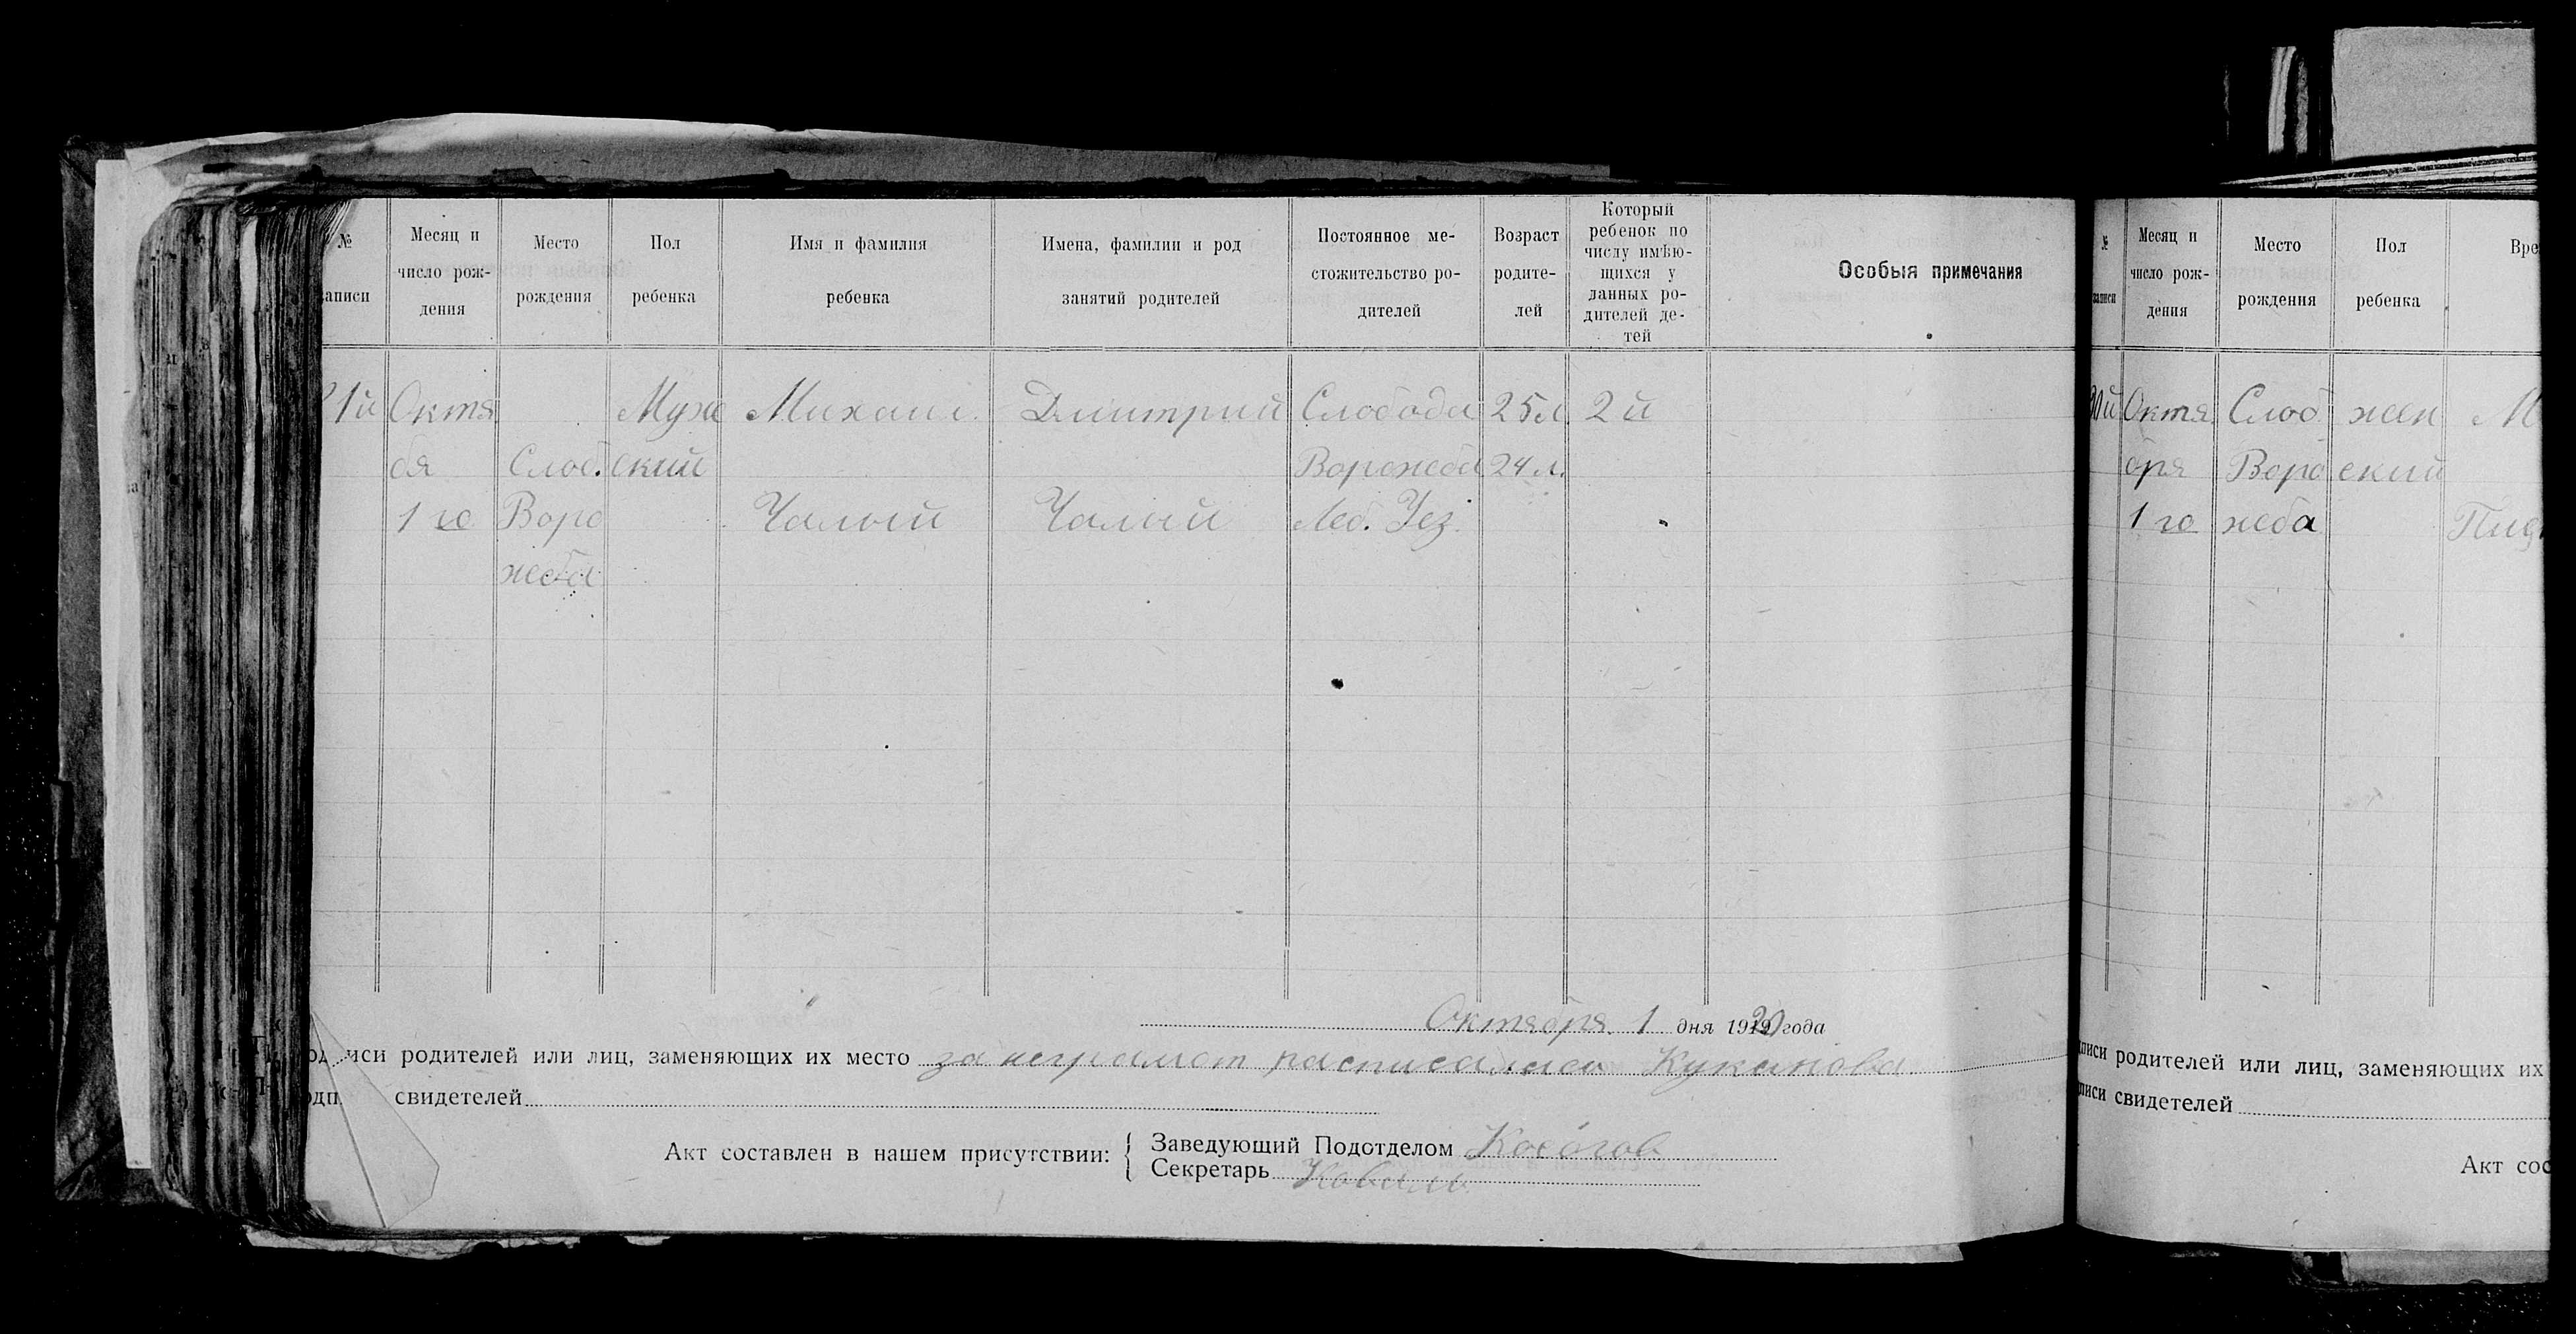 №
аписи
Месяц и
число рож-
дения
Место
рождения
Пол
ребенка
Имя и фамилия
ребенка
Имена, фамилии и род
занятий родителей
Постоянное ме-
стожительство ро-
дителей
Возраст
родите-
лей
Который
ребенок по
числу имѣю-
щихся у
данных ро-
дителей де-
тей
Особыя примечания
1й Октя Муж Михаил Дмитрий Слобода 25 л. 2 й
бя Слоб. ский Ворожба 24 л.
1 го Воро Чалый Чалый Леб. Уез.
жеба
Октября 1 дня 1920 года
писи родителей или лиц, заменяющих их место за неграмот расписалась Куканова
одп свидетелей
Акт составлен в нашем присутствии:
Заведующий Подотделом
Секретарь
№
записи
Месяц и
число рож-
дения
Место
рождения
Пол
ребенка
Вре
Октя Слоб. жен М
бря Воро ский
1 го жеба
писи родителей или лиц, заменяющих их
писи свидетелей
Акт сос